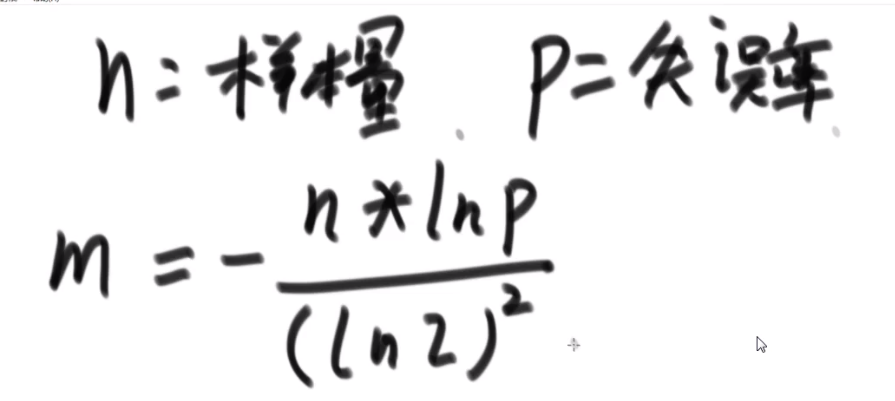 n = 样本量、 p = 失误率、
m = - n * ln p / (ln 2)²